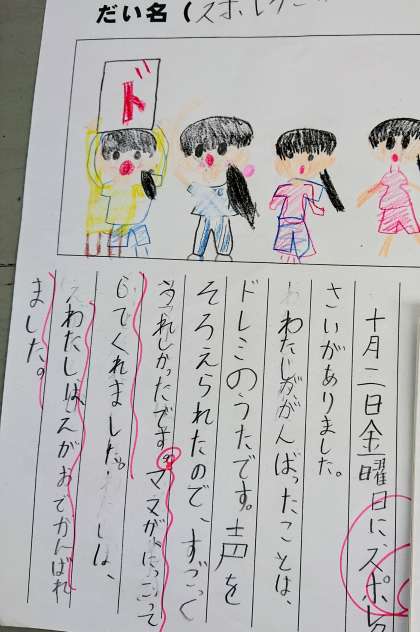 だい名（スポレク
ド
十月二日金曜日に、スポレク
さいがありました。
わたしががんばったことは、
ドレミのうたです。声を
そろえられたので、すごっく
うれしかったです。ママがにっこって
してくれました。
わたしは、えがおでがんばれ
ました。